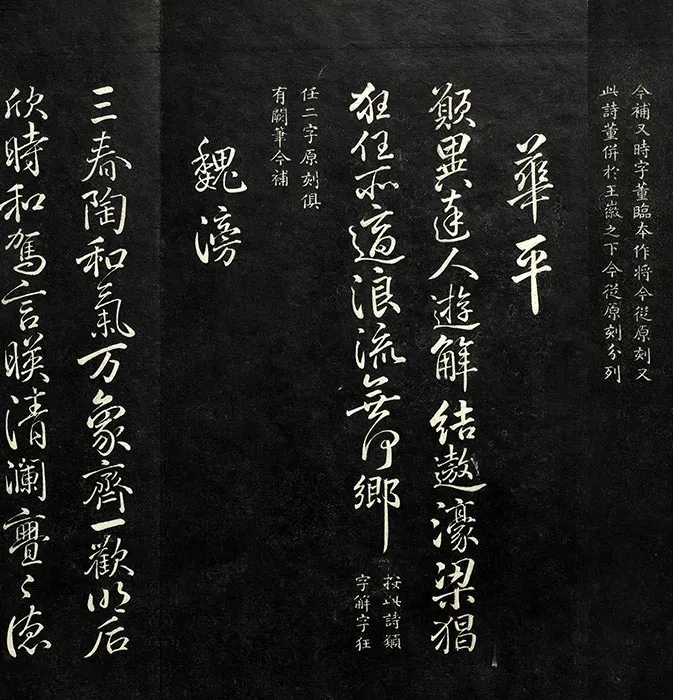 今補又時字董臨本作将今從原刻又
此詩董併於王徽之下今從原刻分列
華平
願異達人遊解結遨濠梁猖
狂任所適浪流無何鄉
按此詩願
字解字狂
任二字原刻俱
有闕筆今補
魏滂
三春陶和氣万象齊一歡明后
欣時和駕言暎清瀾亹〻德